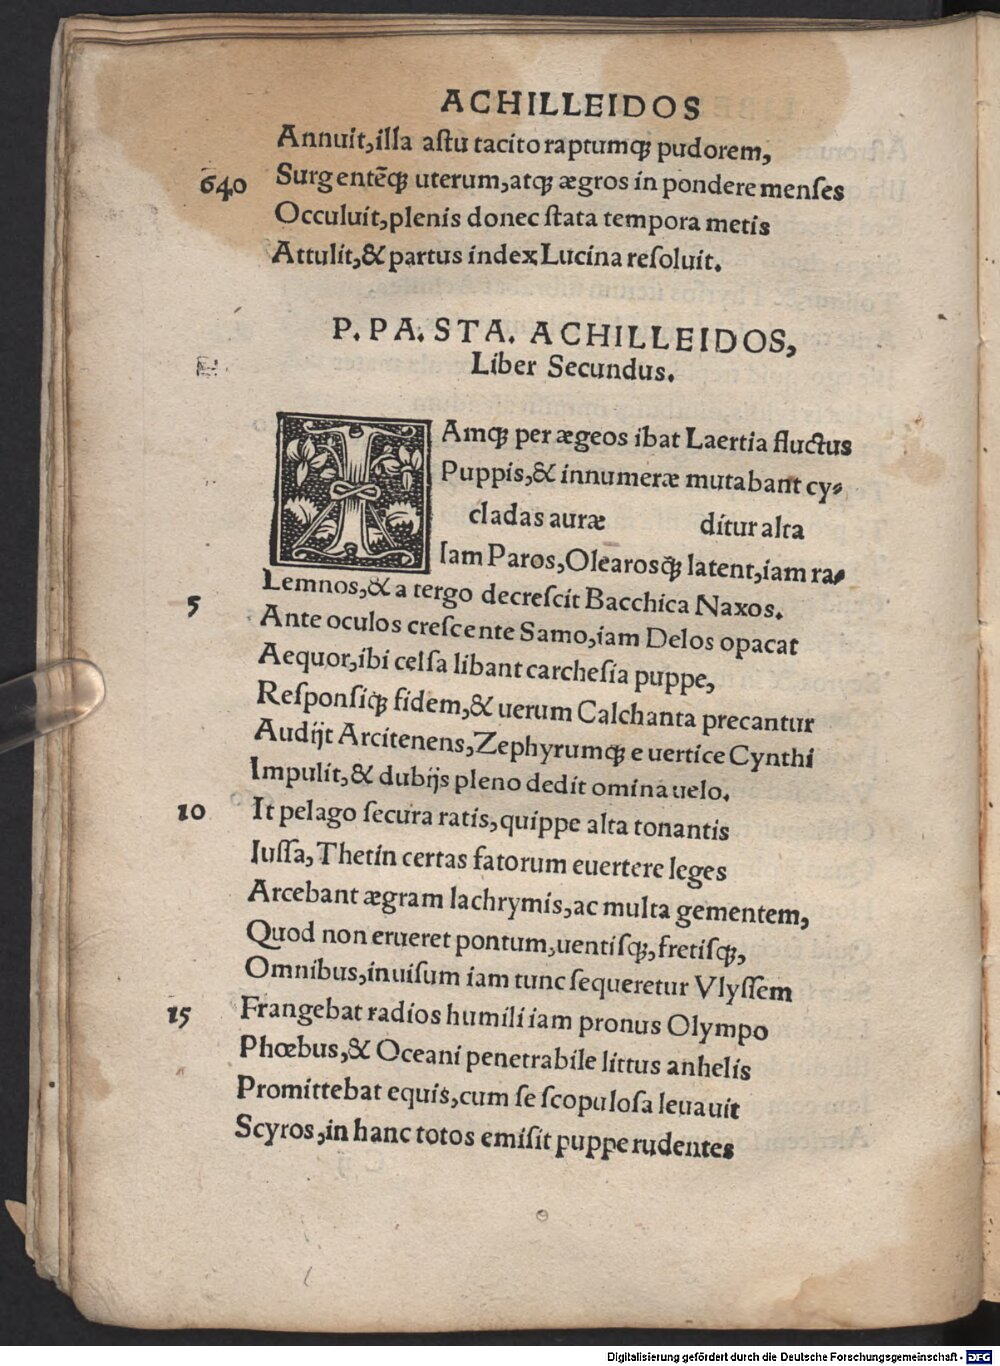 ACHILLEIDOS
Annuit,illa aſtu tacito raptumqꝫ pudorem,
640 Surgentēqꝫ uterum,atqꝫ ægros in pondere menſes
Occuluit,plenis donec ſtata tempora metis
Attulit,& partus index Lucina reſoluit.
P. PA. STA. ACHILLEIDOS,
Liber Secundus.
IAmqꝫ per ægeos ibat Laertia fluctus
Puppis,& innumeræ mutabant cy-
cladas auræ ditur alta
Iam Paros,Olearosqꝫ latent,iam ra-
Lemnos,& a tergo decreſcit Bacchica Naxos.
5 Ante oculos creſcente Samo,iam Delos opacat
Aequor,ibi celſa libant carcheſia puppe,
Reſponſiqꝫ fidem,& uerum Calchanta precantur
Audijt Arcitenens,Zephyrumqꝫ e uertice Cynthi
Impulit,& dubijs pleno dedit omina uelo.
10 It pelago ſecura ratis,quippe alta tonantis
Iuſſa,Thetin certas fatorum euertere leges
Arcebant ægram lachrymis,ac multa gementem,
Quod non erueret pontum,uentiſqꝫ,fretiſqꝫ,
Omnibus,inuiſum iam tunc ſequeretur Vlyſſem
15 Frangebat radios humili iam pronus Olympo
Phœbus,& Oceani penetrabile littus anhelis
Promittebat equis,cum ſe ſcopuloſa leuauit
Scyros,in hanc totos emiſit puppe rudentes
Digitalisierung gefördert durch die Deutsche Forschungsgemeinschaft - DFG